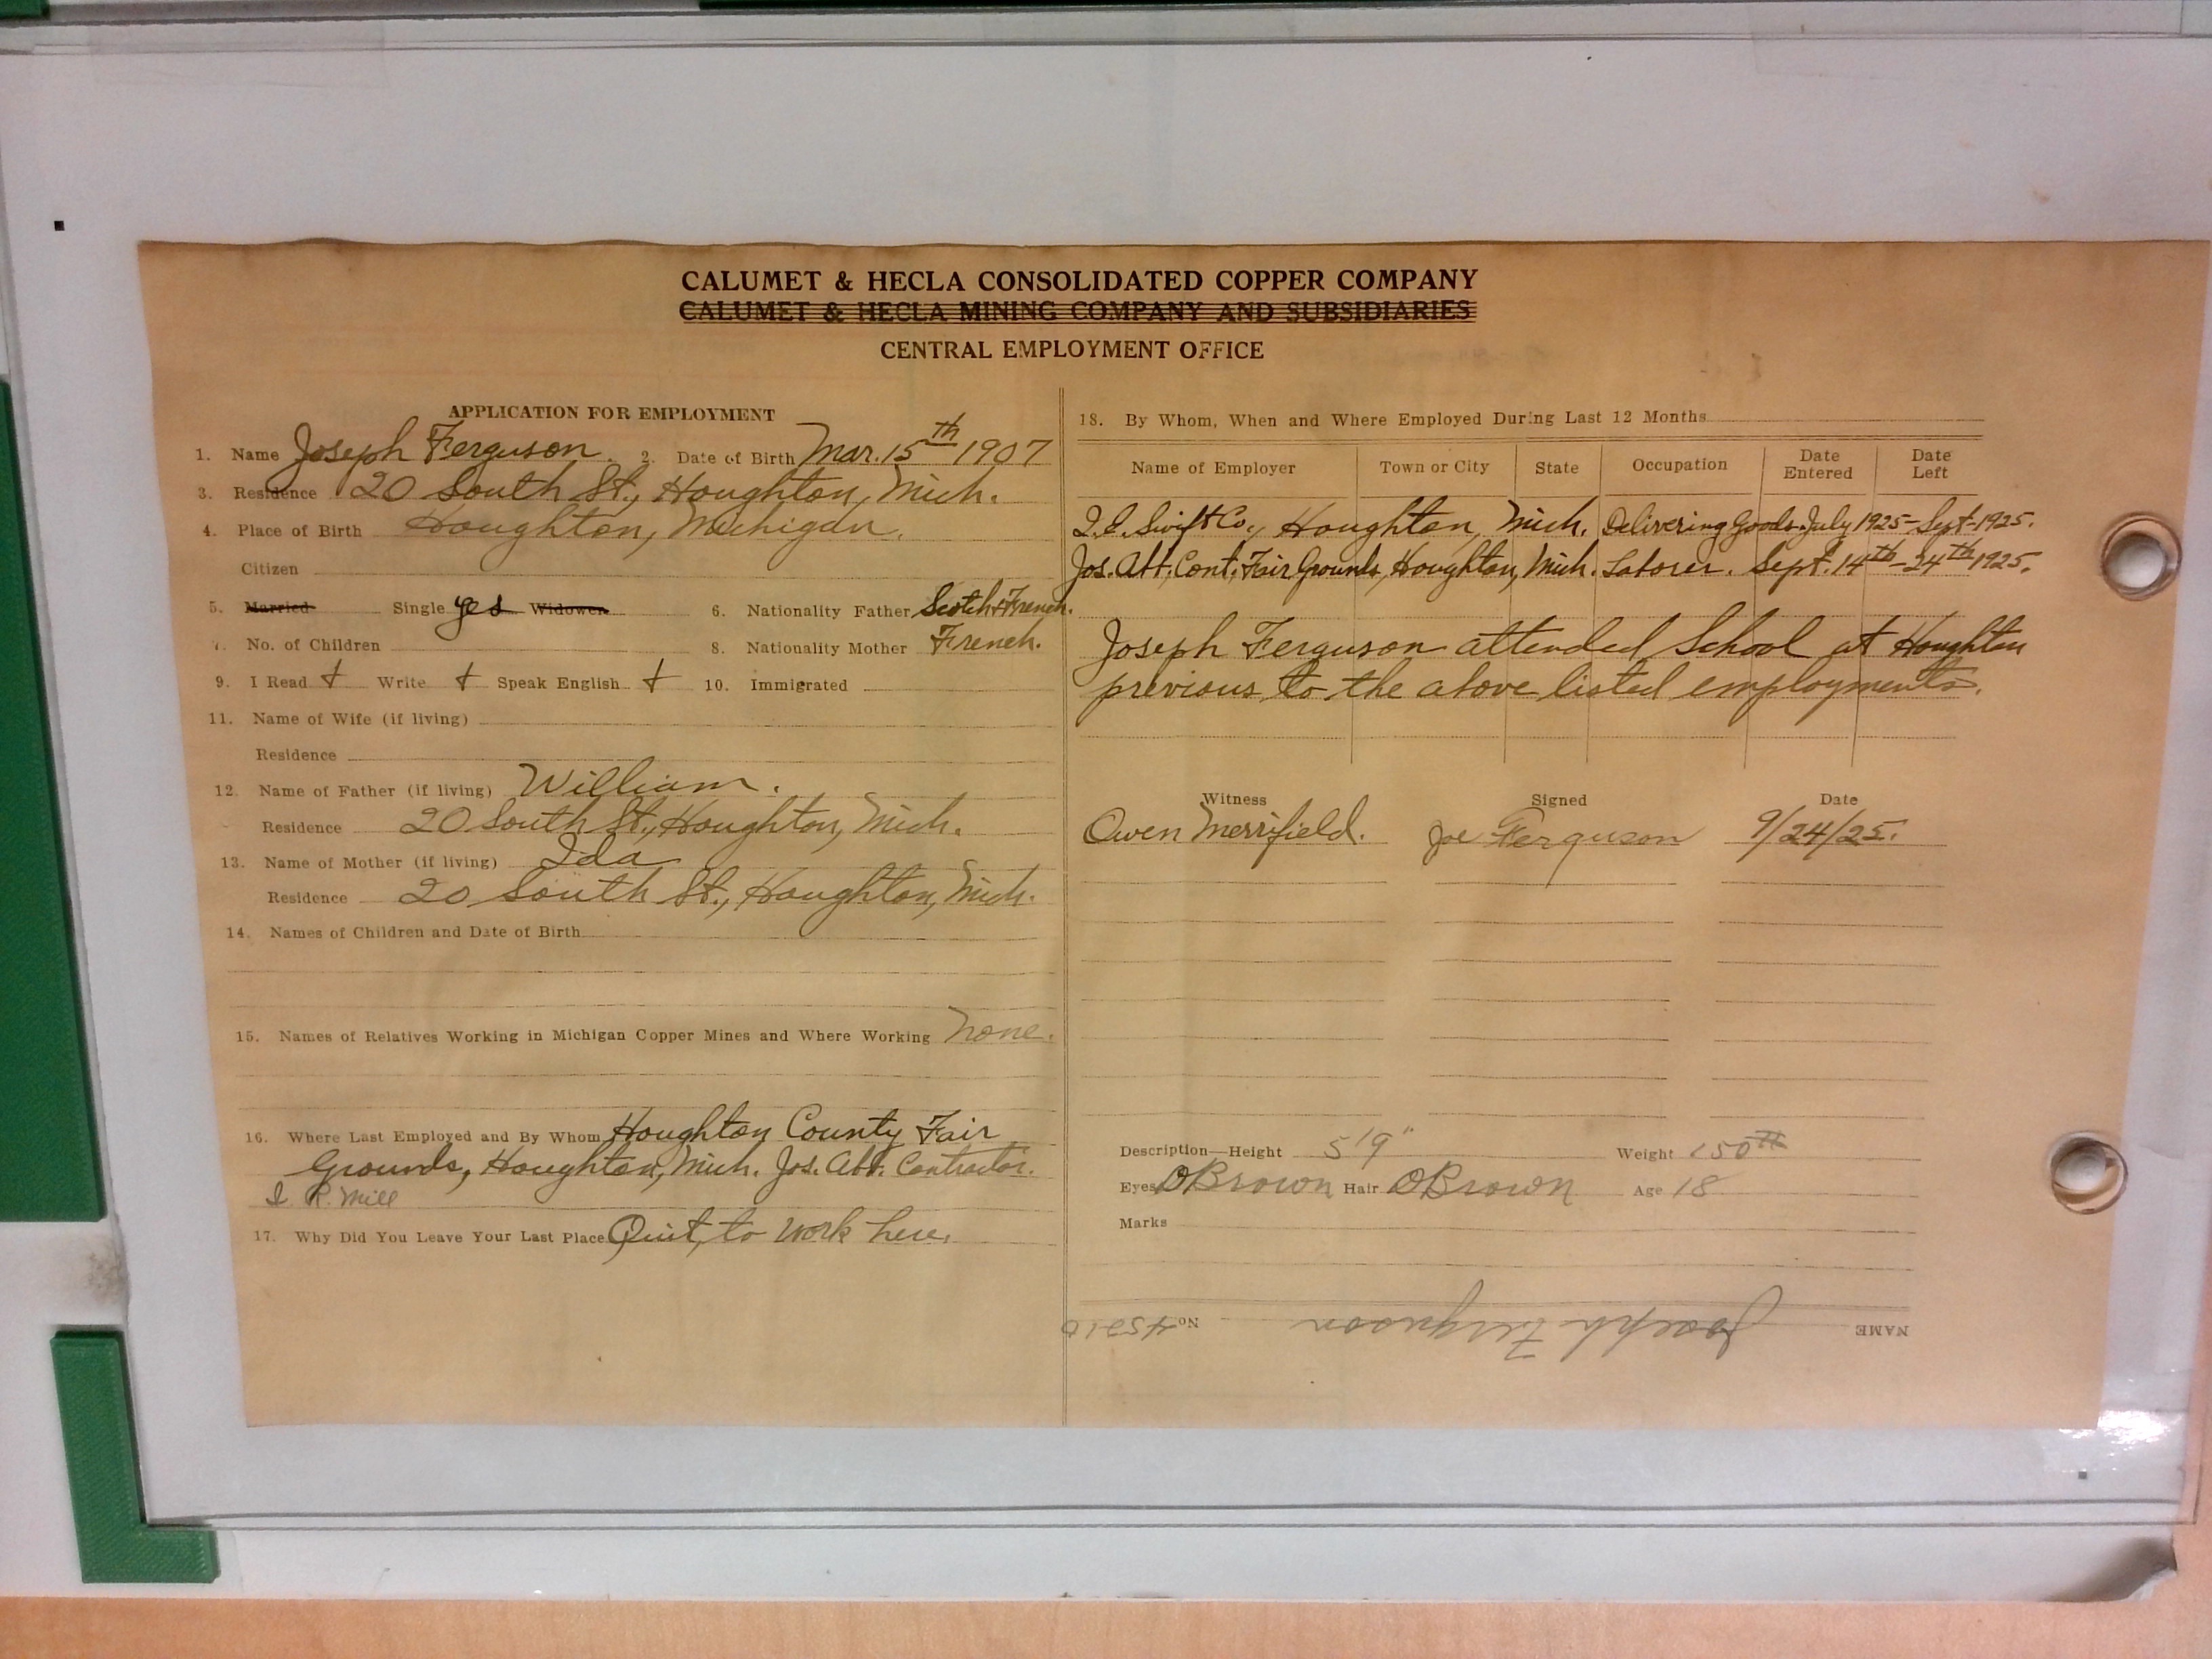 CALUMET & HECLA CONSOLIDATED COPPER COMPANY
CALUMET & HECLA MINING COMPANY AND SUBSIDIARIES
CENTRAL EMPLOYMENT OFFICE
APPLICATION FOR EMPLOYMENT
1. Name Joseph Ferguson. 2. Date of Birth Mar. 15th 1907
3. Residence 20 South St., Houghton, Mich.
4. Place of Birth Houghton, Michigan.
Citizen
5. Married Single yes Widower 6. Nationality Father Scotch & French.
7. No. of Children 8. Nationality Mother French.
9. I Read + Write + Speak English + 10. Immigrated
11. Name of Wife (if living)
Residence
12. Name of Father (if living) William.
Residence 20 South St., Houghton, Mich.
13. Name of Mother (if living) Ida
Residence 20 South St., Houghton, Mich.
14. Names of Children and Date of Birth
15. Names of Relatives Working in Michigan Copper Mines and Where Working None.
16. Where Last Employed and By Whom Houghton County Fair
Grounds, Houghton, Mich. Jos. Abt. Contractor.
R. Mill
17. Why Did You Leave Your Last Place Quit, to work here.
18. By Whom, When and Where Employed During Last 12 Months
Name of Employer Town or City State Occupation Date Entered Date Left
Swift Co., Houghton, Mich. Delivering Goods. July 1925 - Sept-1925.
Jos. Abt, Cont, Fair Grounds, Houghton, Mich. Laborer. Sept. 14th - 24th 1925.
Joseph Ferguson attended School at Houghton
previous to the above listed employments.
Witness Signed Date
Owen Merrifield. Joe Ferguson 9/24/25.
Description—Height 5'9" Weight 150#
Eyes DBrown Hair DBrown Age 18
Marks
NAME Joseph Ferguson No. 45210